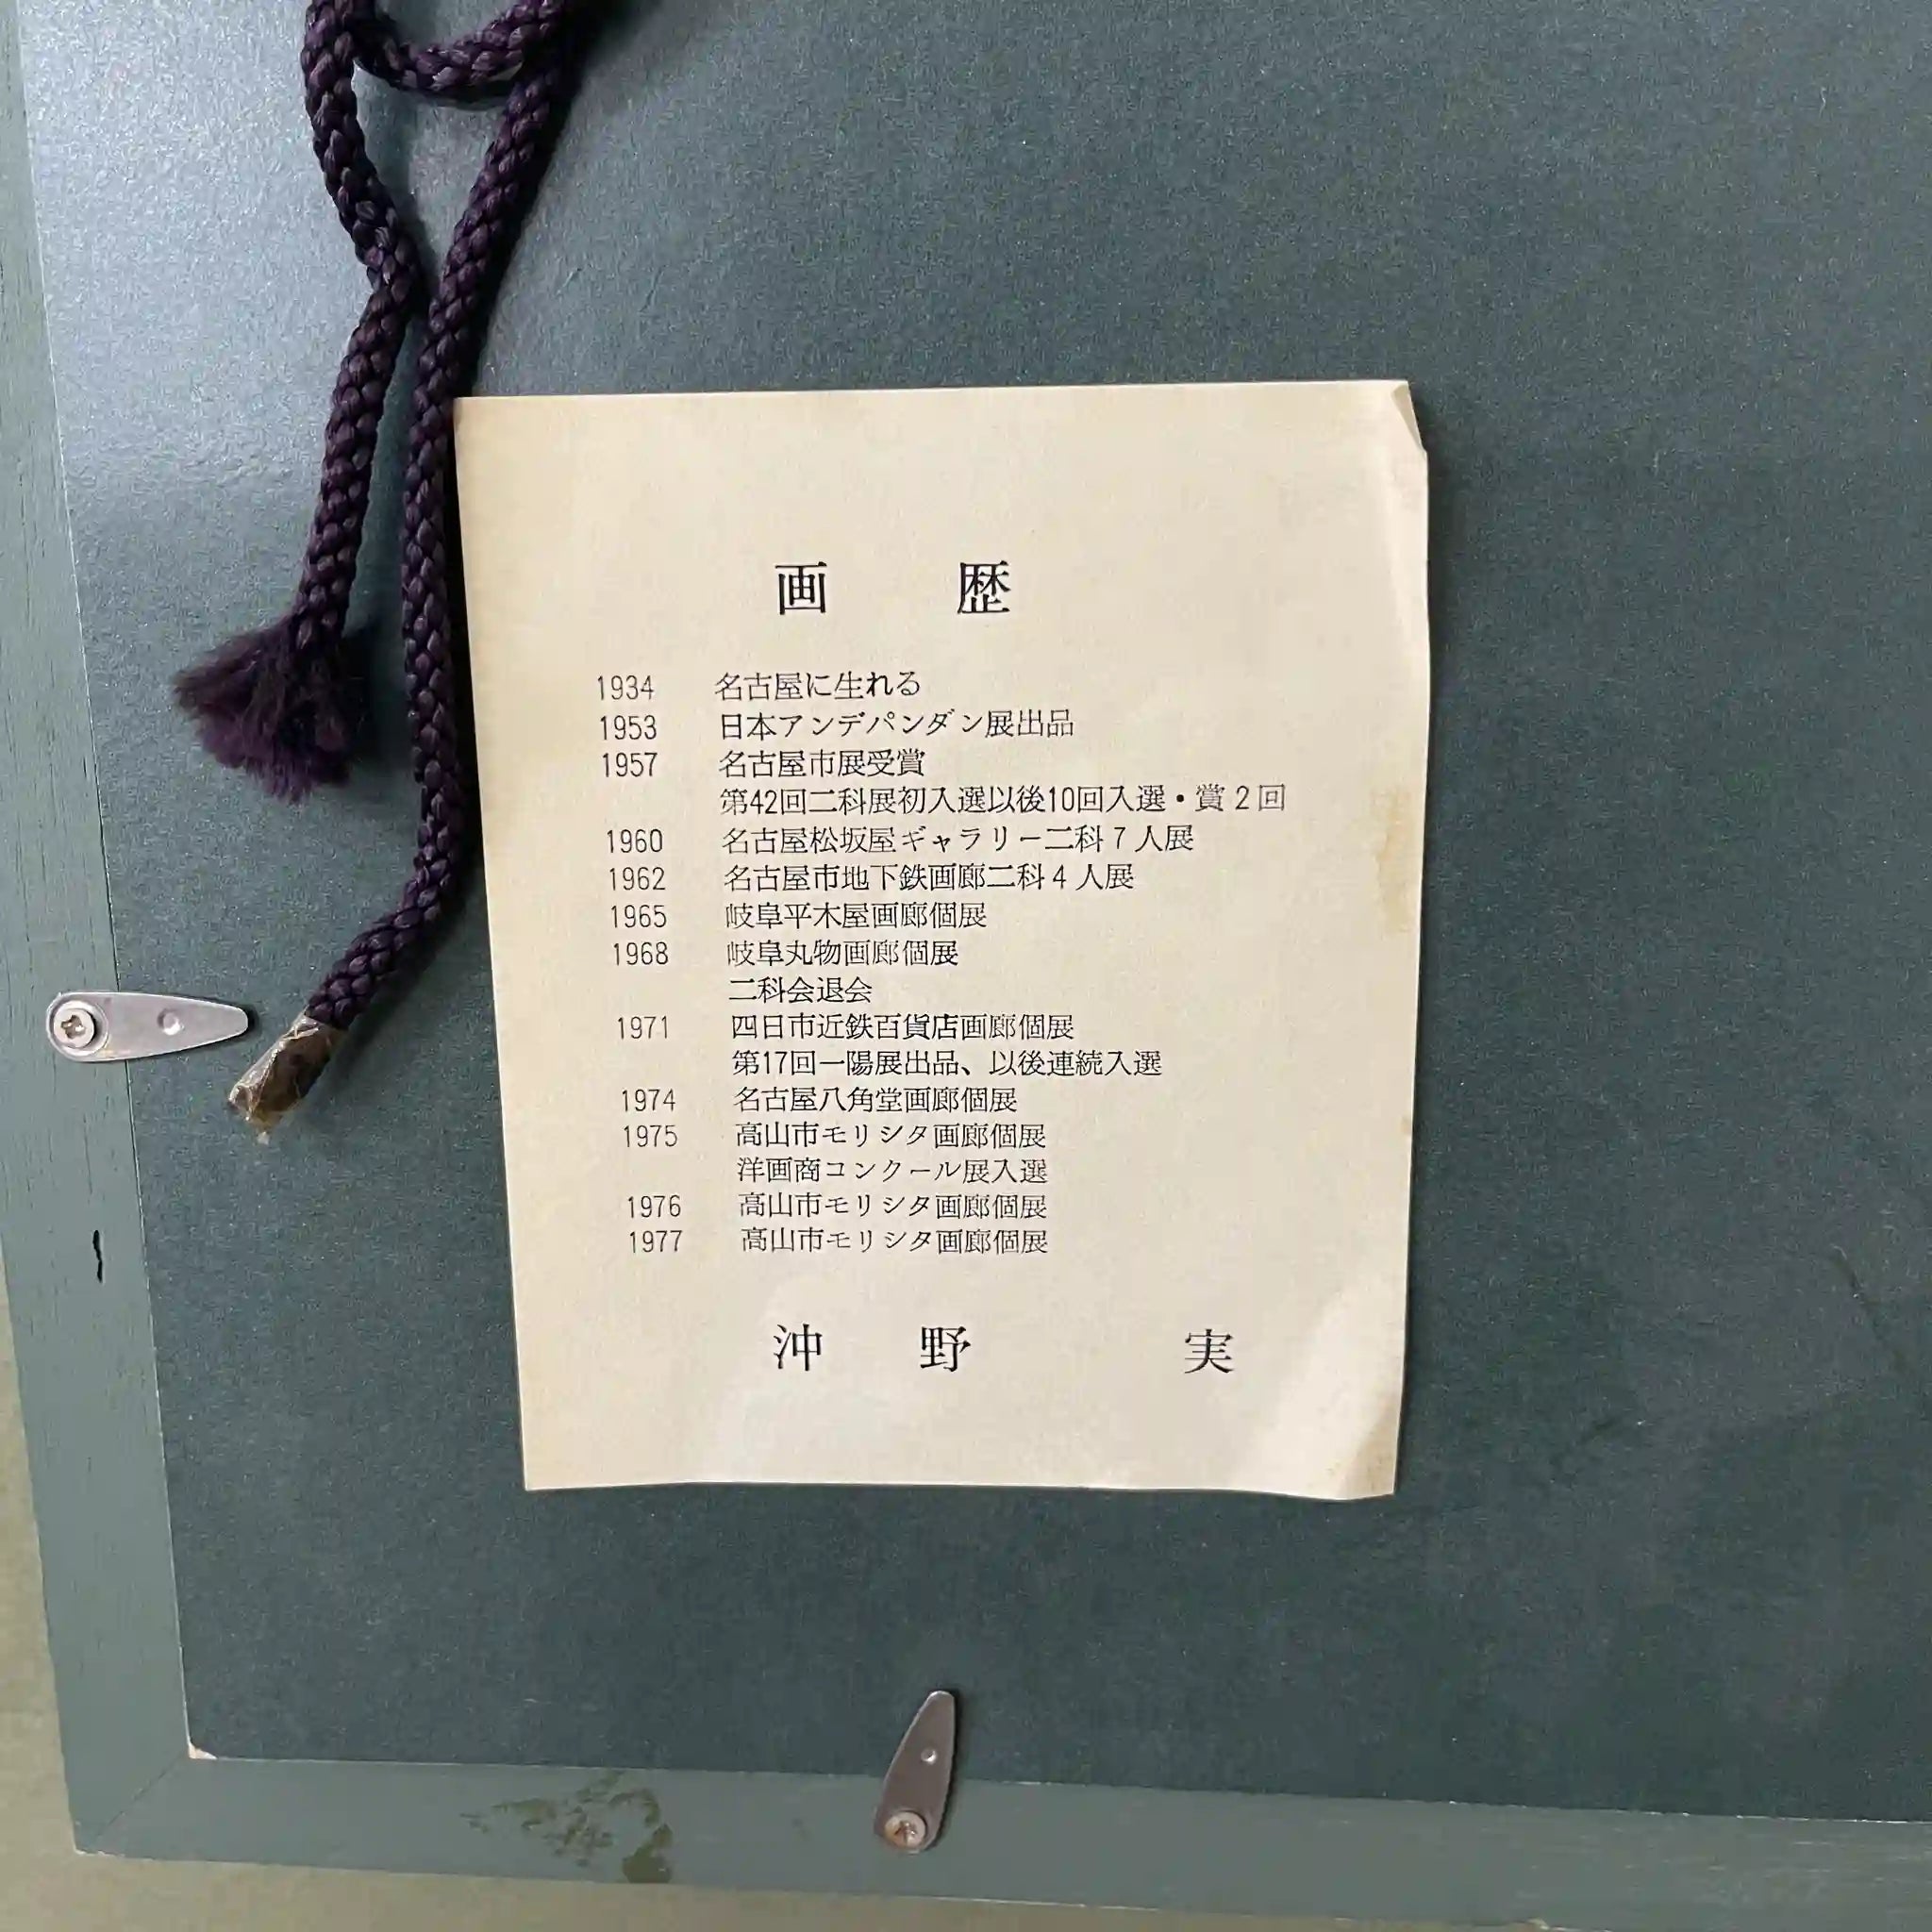 画 歴
1934 名古屋に生れる
1953 日本アンデパンダン展出品
1957 名古屋市展受賞
第42回二科展初入選以後10回入選・賞2回
1960 名古屋松坂屋ギャラリー二科7人展
1962 名古屋市地下鉄画廊二科4人展
1965 岐阜平木屋画廊個展
1968 岐阜丸物画廊個展
二科会退会
1971 四日市近鉄百貨店画廊個展
第17回一陽展出品、以後連続入選
1974 名古屋八角堂画廊個展
1975 高山市モリシタ画廊個展
洋画商コンクール展入選
1976 高山市モリシタ画廊個展
1977 高山市モリシタ画廊個展
沖 野 実